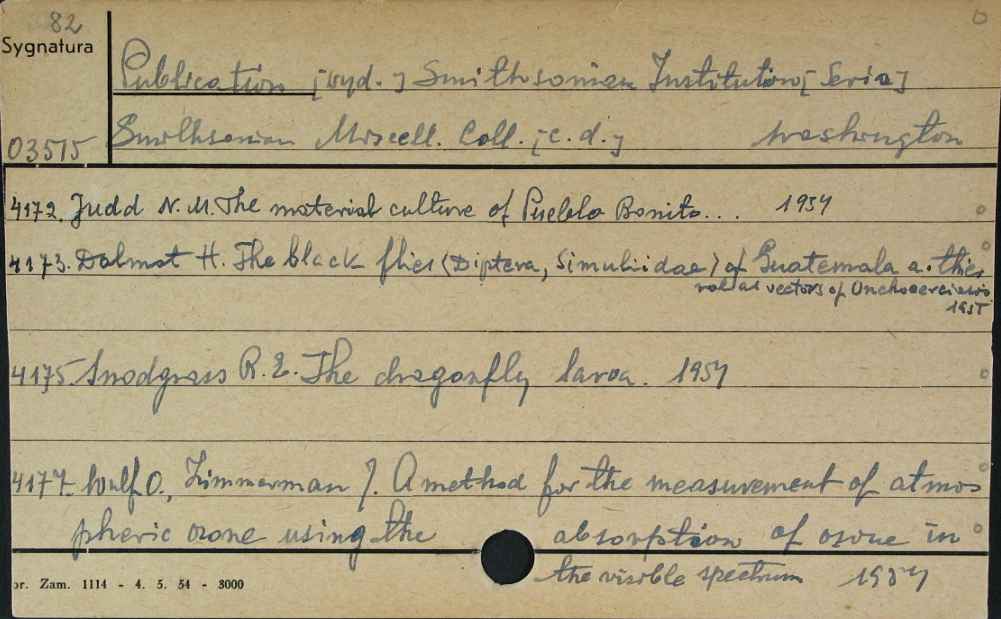 82
Sygnatura
Publication [wyd.] Smithsonian Institution [Seria]
03515 Smithsonian Miscell. Coll. [c.d.] Washington
4172. Judd N.M. The material culture of Pueblo Bonito... 1954
4173. Dalmat H. The black flies (Diptera, Simuliidae) of Guatemala a. their
role as vectors of Onchocerciasis
1955
4175. Snodgrass R.E. The dragonfly larva. 1954
4177. Wulf O., Zimmerman J. A method for the measurement of atmos
pheric ozone using the absorption of ozone in
the visible spectrum 1954
or. Zam. 1114 - 4. 5. 54 - 3000